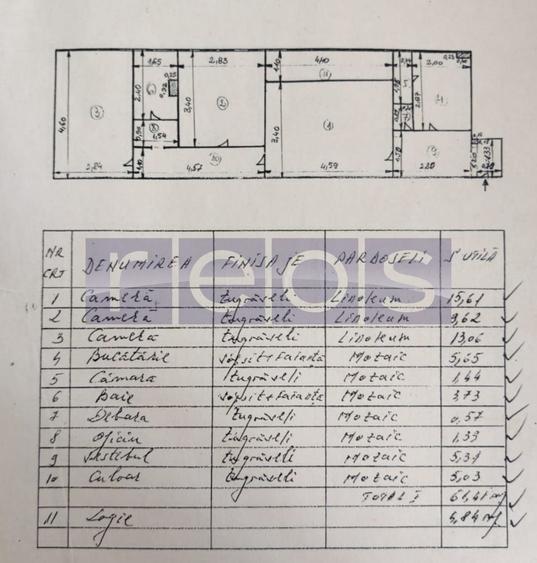 1,65 0,25 2,83 4,10 0,25 2,00
4,60 2,40 0,72 3,40 1,10 2,87
3 6 2 11 5 4
8 1 7
1,54 3,40
2,84 10 4,57 4,59 9 2,20
rebs
NR CRT DENUMIREA FINISAJE PARDOSELI S UTILĂ
1 Cameră tugrăveli Linoleum 15,61
2 Cameră tugrăveli Linoleum 9,62
3 Camera tugrăveli Linoleum 13,06
4 Bucătărie vopsit+faianța Mozaic 5,65
5 Cămara tugrăveli Mozaic 1,44
6 Baie vopsit+faianța Mozaic 3,73
7 Debara tugrăveli Mozaic 0,57
8 Oficiu tugrăveli Mozaic 1,33
9 Vestibul tugrăveli Mozaic 5,37
10 Culoar tugrăveli Mozaic 5,03
TOTAL I 61,41 mp
11 Logie 4,84 mp